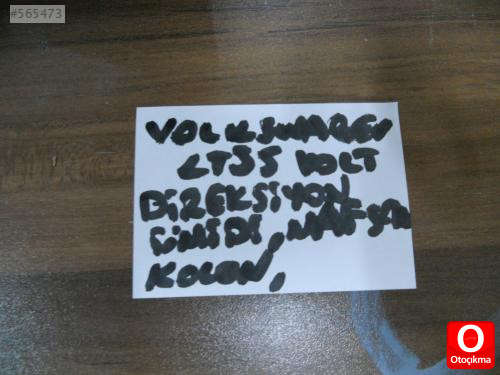 #565473
VOLKSWAGEN
LT35 VOLT
DİREKSİYON
SİMİDİ, MAFSAL
KOLON,
O
Otoçıkma